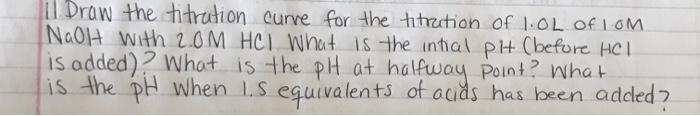 11 Draw the titration curve for the titration of 1.0L of 1.0M
NaOH with 2.0M HCl What is the intial pH (before HCl
is added)? What is the pH at halfway point? What
is the pH when 1.5 equivalents of acids has been added?